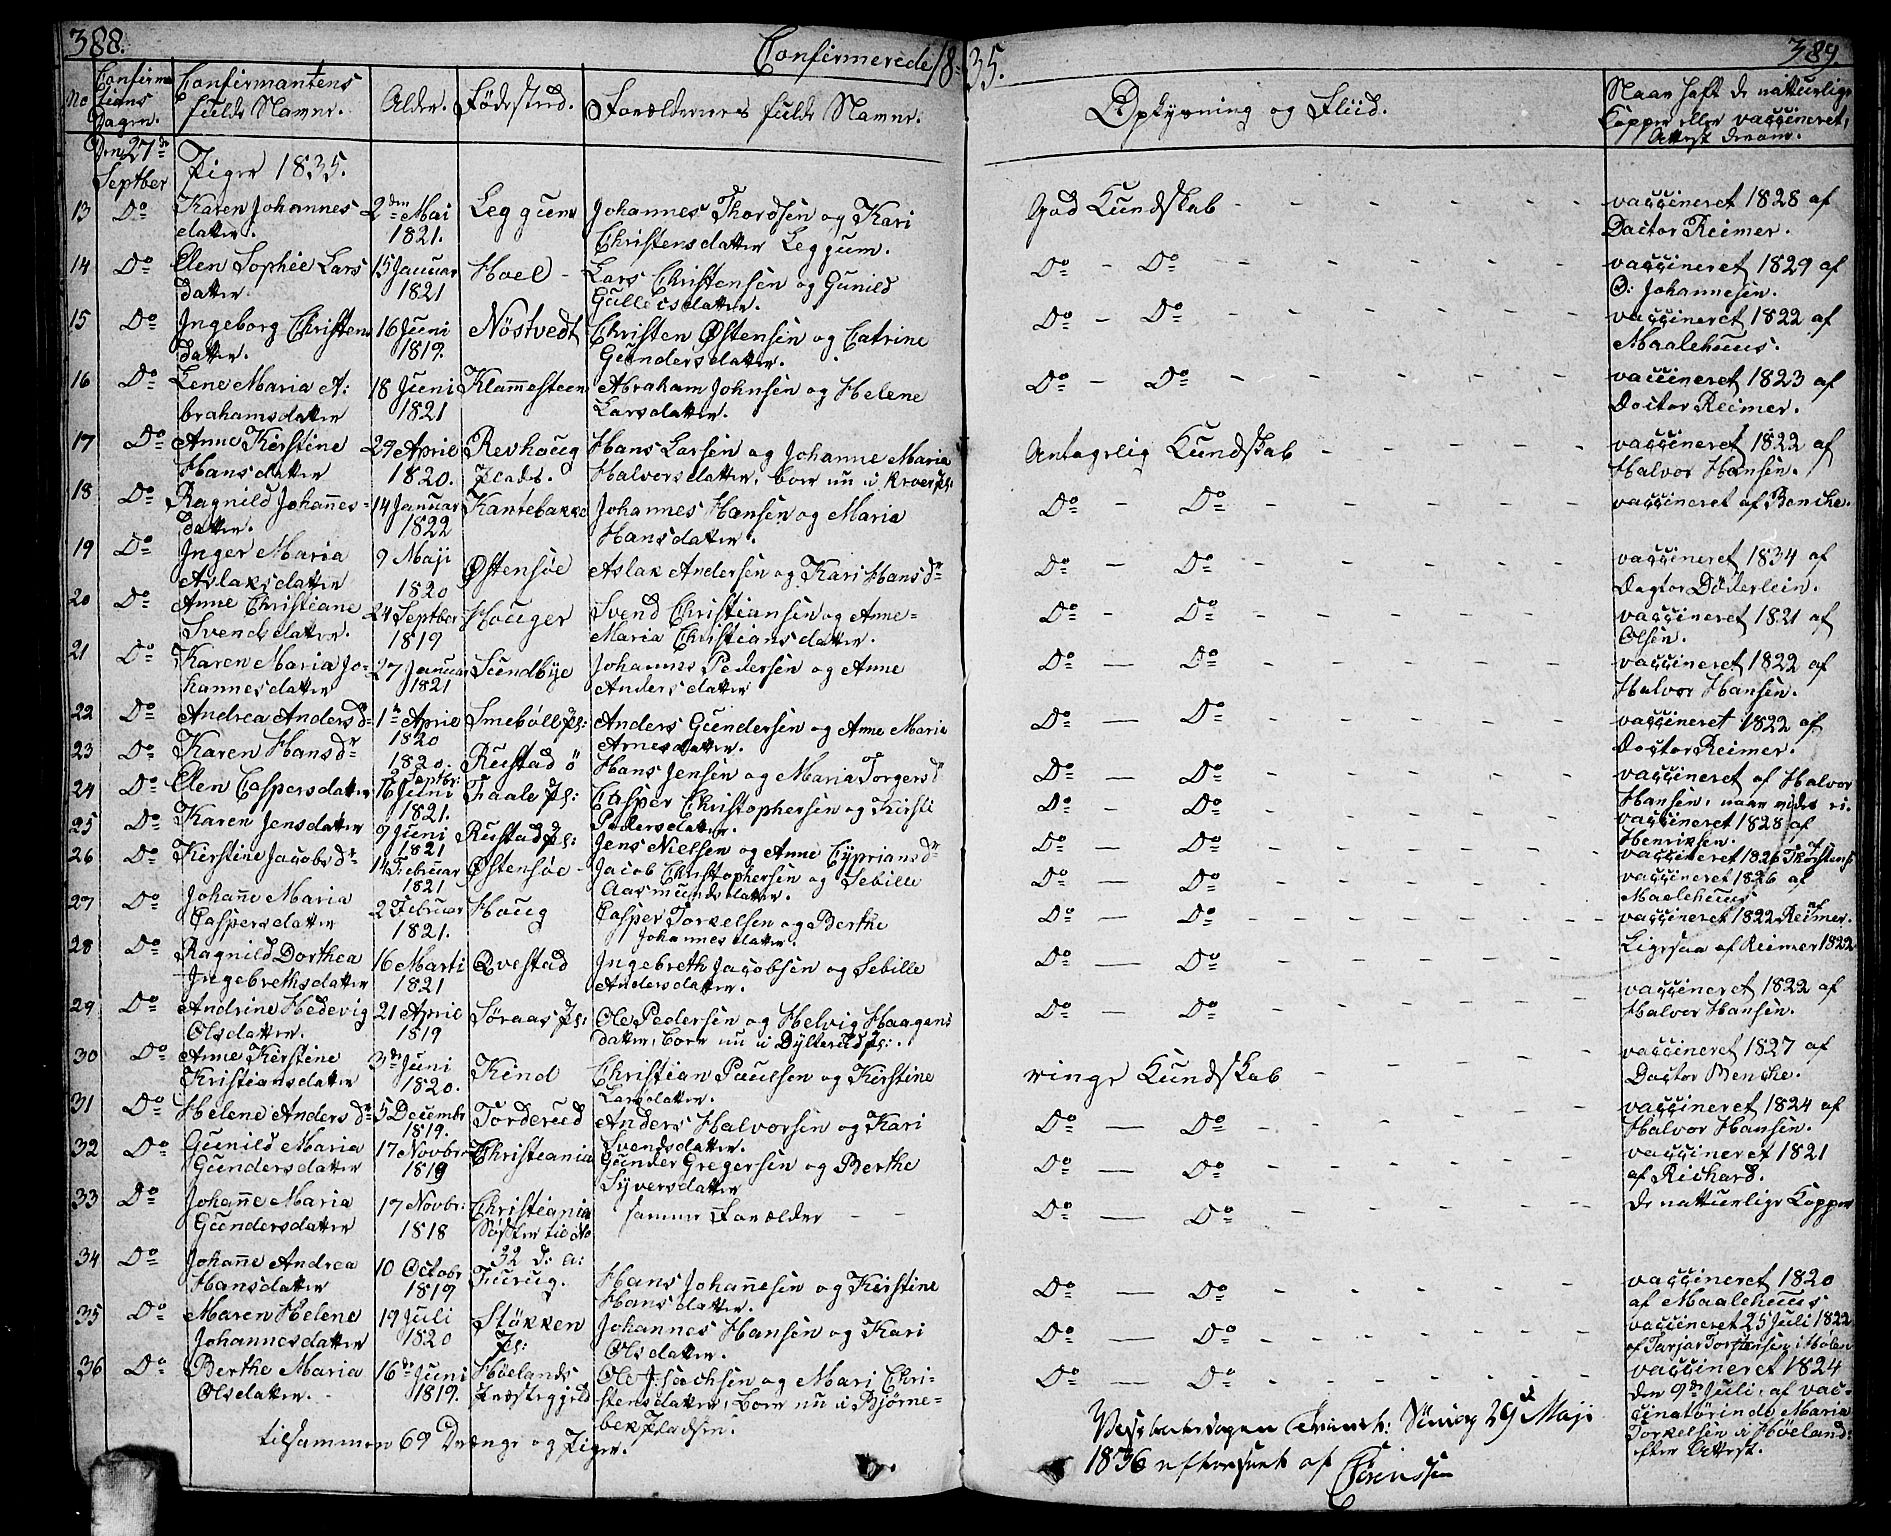 388.
Confirmerede 1835.
389.
No
Confirma
tions
Dagen.
Confirmantens
fulde Navne.
Alder.
Fødested.
Forældrenes fulde Navne.
Oplysning og Fliid.
Naar haft de naturlige
Kopper eller vaccineret,
Attest derom.
Den 27de
Septber
Piger 1835.
13 Do Karen Johannes
datter. 2den Mai
1821. Leggum Johannes Thordsen og Kari
Christensdatter Leggum. God Kundskab vaccineret 1828 af
Doctor Reimer.
14 Do Elen Sophie Lars
datter 15 Januar
1821 Hoel Lars Christensen og Gunild
Gulleisdatter. Do Do vaccineret 1829 af
O: Johannesen.
15 Do Ingeborg Christens
datter. 16 Juni
1819. Nöstvedt Christen Østensen og Catrine
Gundersdatter. Do Do vaccineret 1822 af
Maalehuus.
16 Do Lene Maria A:
brahamsdatter 18 Juni
1821 Klammesteen Abraham Johnsen og Helene
Larsdatter. Do Do vaccineret 1823 af
Doctor Reimer.
17 Do Anne Kirstine
Hansdatter 29 April
1820. Revhoug
Plads. Hans Larsen og Johanne Maria
Halvorsdatter, boer nu i Kroer Pl: Antagelig Kundskab vaccineret 1822 af
Halvor Hansen.
18 Do Ragnild Johannes-
datter. 14 Januar
1822 Kantebakke Johannes Hansen og Maria
Hansdatter. Do Do vaccineret af Bencke.
19 Do Inger Maria
Aslaksdatter 9 Maji
1820 Østensøe Aslak Andersen og Kari Hansdr Do Do vaccineret 1834 af
Doctor Döderlein.
20 Do Anne Christiane
Svendsdatter. 24 Septber
1819 Houger Svend Christiansen og Anne-
Maria Christiansdatter. Do Do vaccineret 1821 af
Olsen.
21 Do Karen Maria Jo-
hannesdatter 27 Januar
1821 Sundbye Johannes Pedersen og Anne
Andersdatter Do Do vaccineret 1822 af
Halvor Hansen.
22 Do Andrea Andersdr 1te April
1820 Smeböll Pl: Anders Gundersen og Anne Maria
Arnesdatter. Do Do vaccineret 1822 af
Doctor Reimer.
23 Do Karen Hansdr 1820.
2 Septbr: Rustad ö Hans Jensen og Maria Torgersdr Do Do vaccineret af Halvor
Hansen, naar vides ei.
24 Do Elen Caspersdatter 16 Juni
1821. Faale Pl: Casper Christophersen og Kirsti
Pedersdatter. Do Do vaccineret 1828 af
Henriksen.
25 Do Karen Jensdatter 9 Juni
1821 Rustad Pl: Jens Nielsen og Anne Cypriansdr Do Do vaccineret 1826 af Thorstens
26 Do Kirstine Jacobsdr 14 Februar
1821 Østensøe Jacob Christophersen og Sebille
Aasmundsdatter. Do Do vaccineret 1826 af
Maalehuus
27 Do Johanne Maria
Caspersdatter 2 Februar
1821. Houg Casper Torkelsen og Berthe
Johannesdatter. Do Do vaccineret 1822 af Reimer.
28 Do Ragnild Dorthea
Ingebrethsdatter 16 Marti
1821 Qvestad Ingebreth Jacobsen og Sebille
Andersdatter. Do Do Ligesaa af Reimer 1822
29 Do Andrine Hedevig
Olsdatter. 21 April
1819 Söraas Pl: Ole Pedersen og Helvig Haagens
datter, boer nu i Dylterud Pl:. Do Do vaccineret 1822 af
Halvor Hansen.
30 Do Anne Kirstine
Kristiansdatter 3de Juni
1820. Kind Christian Paulsen og Kirstine
Larsdatter. ringe Kundskab vaccineret 1827 af
Doctor Bencke.
31 Do Helene Andersdr 5 Decembr
1819. Torderud Anders Halvorsen og Kari
Svendsdatter. Do Do vaccineret 1824 af
Halvor Hansen.
32 Do Gunild Maria
Gundersdatter 17 Novbr
1819 Christiania Gunder Gregersen og Berthe
Syversdatter Do Do vaccineret 1821
af Richard.
33 Do Johanne Maria
Gundersdatter 17 Novbr:
1818 Christiania
Söster til No
32 d: a: samme Forælder Do Do de naturlige Kopper
34 Do Johanne Andrea
Hansdatter 10 Octobr
1819 Furug. Hans Johannesen og Kirstine
Hansdatter. Do Do vaccineret 1820
af Maalehuus
35 Do Maren Helene
Johannesdatter 19 Juli
1820 Stökken
Pl: Johannes Hansen og Kari
Olsdatter. Do Do vaccineret 25 Juli 1822
af Tarjer Torstensen i Hölen
36 Do Berthe Maria
Olsdatter. 16de Juni
1819. Höelands
Præstegjeld Ole Jsachsen og Mari Chri-
stensdatter, boer nu i Bjørne-
bek Pladsen. Do Do vaccineret 1824
den 9de Juli, af vac-
cinatørinde Maria
Torkelsen i Höeland:
efter Attest.
tilsammen 69 Drenge og Piger.
29de Maji
1836 efterseet af